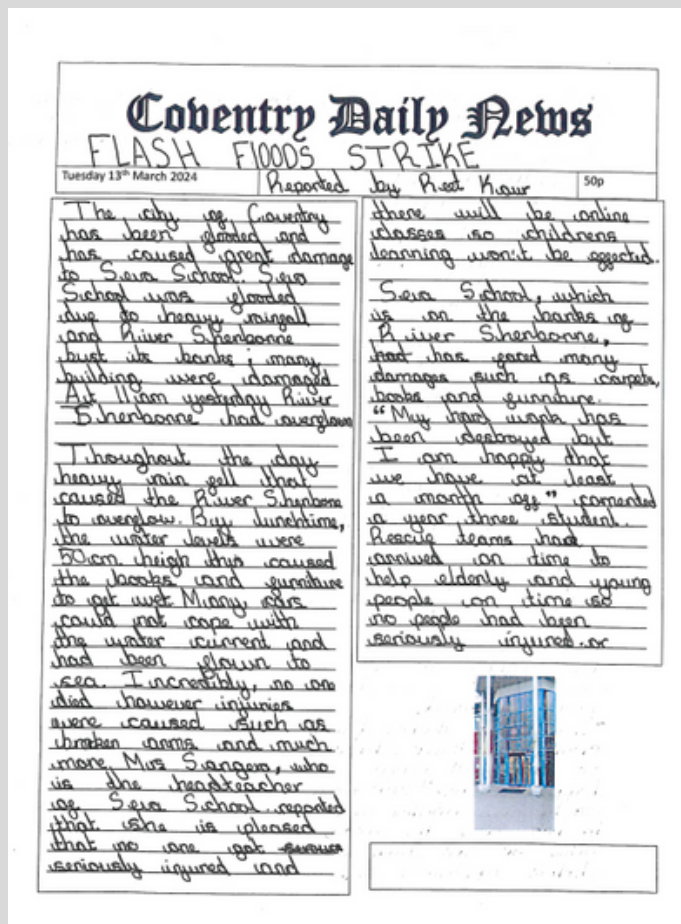 Coventry Daily News
FLASH FlOODS STRIKE
Tuesday 13th March 2024
Reported by Reet Kaur
50p
The city of Coventry
has been flooded and
has caused great damage
to Seva School. Seva
School was flooded
due to heavy rainfall
and River Sherbonne
bust its banks; many
building were damaged
At 11am yesterday River
Sherbonne had overflown
Thoughout the day
heavy rain fell that
caused the River Sherbone
to overflow. By lunchtime,
the water levels were
50cm heigh this caused
the books and furniture
to get wet Many cars
could not cope with
the water current and
had been flown to
sea. Incredibly, no one
died however injuries
were caused such as
broken arms and much
more. Mrs Sangera, who
is the headteacher
of Seva School reported
that she is pleased
that no one got
seriously injured and
there will be online
classes so childrens
learning won't be effected.
Seva School, which
is on the banks of
River Sherbonne,
had has faced many
damages such as carpets,
books and furniture.
"My hard work has
been destroyed but
I am happy that
we have at least
a month off" comented
a year three student.
Rescue teams had
arrived on time to
help elderly and young
people on time so
no people had been
seriously injured. or